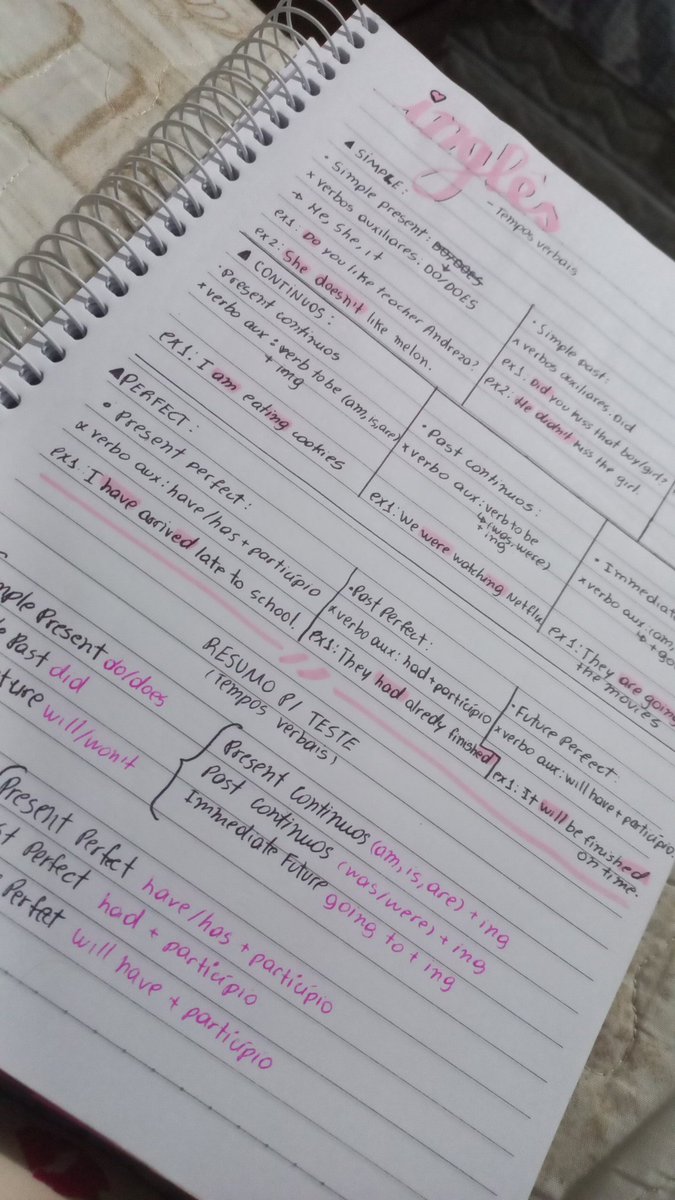 inglês
- Tempos verbais
▲ SIMPLE:
• Simple present: DO/DOES
x verbos auxiliares. DO/DOES
→ He, She, it
ex1: Do you like teacher Andreza?
ex2: She doesn't like melon.
• Simple past:
x verbos auxiliares. Did
ex1: Did you kiss that boy/girl?
ex2: He didn't kiss the girl.
▲ CONTINUOS:
• present continuos
x verbo aux: verb to be (am, is, are)
+ ing
ex1: I am eating cookies
• Past continuos:
x verbo aux: verb to be
↳ (was, were)
+ ing
ex1: We were watching Netflix
• Immediat
x verbo aux: (am,
↳ + go
ex1: They are going
the movies
▲ PERFECT:
• present perfect:
x verbo aux: have/has + particípio
ex1: I have arrived late to school.
• Past Perfect:
x verbo aux: had + particípio
ex1: They had already finished
• Future Perfect:
x verbo aux: will have + particípio
ex1: It will be finished
on time.
RESUMO P/ TESTE
(Tempos verbais)
mple Present do/does
le Past did
ture will/won't
Present Continuos (am, is, are) + ing
Past continuos (was/were) + ing
Immediate Future going to + ing
Present Perfect have/has + particípio
st Perfect had + particípio
e Perfect will have + particípio